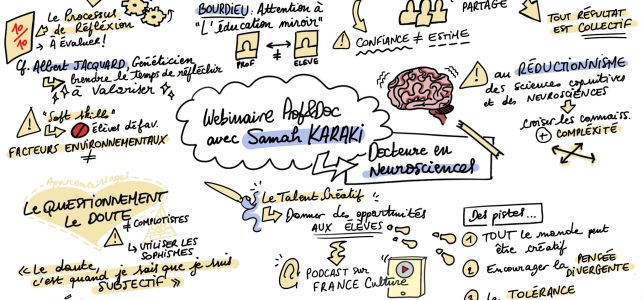 Le Processus
de Réflexion
→ À évaluer!
10/10
Cf. Albert JACQUARD, Généticien
prendre le temps de réfléchir
à valoriser
"Soft skills"
Élèves défav.
FACTEURS ENVIRONNEMENTAUX
≠
BOURDIEU: Attention à
"L'éducation miroir"
PROF
=
≠
ÉLÈVE
PARTAGE
CONFIANCE ≠ ESTIME
TOUT RÉSULTAT
EST COLLECTIF
au RÉDUCTIONNISME
des sciences cognitives
et des NEUROSCIENCES
Croiser les connaiss.
+ COMPLEXITÉ
Webinaire Prof&Doc
avec Samah KARAKI
Docteure en
Neurosciences
Apprentissages
Le QUESTIONNEMENT
Le DOUTE
≠ COMPLOTISTES
↳ UTILISER LES
SOPHISMES
« Le doute,
c'est quand je sais que je suis
SUBJECTIF »
Le Talent Créatif
Donner des opportunités
AUX ÉLÈVES
PODCAST sur
FRANCE Culture
Des pistes...
1 TOUT le monde peut
être créatif
2 Encourager la PENSÉE
DIVERGENTE
3 La TOLÉRANCE